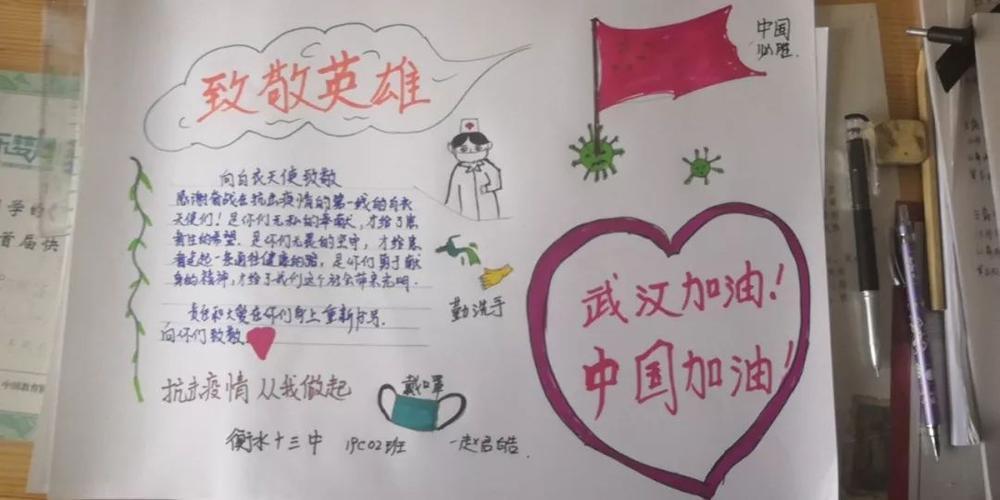 致敬英雄
中国
必胜.
向白衣天使致敬
感谢奋战在抗击疫情的第一线的白衣
天使们！是你们无私的奉献，才给了患
者生的希望。是你们无畏的坚守，才给患
者走起一条通往健康的路，是你们勇于献
身的精神，才给了我们这个社会带来光明.
责任和大爱在你们身上重新书写.
向你们致敬
勤洗手
武汉加油！
中国加油！
抗击疫情 从我做起
戴口罩
衡水十三中 19C02班
中国教育